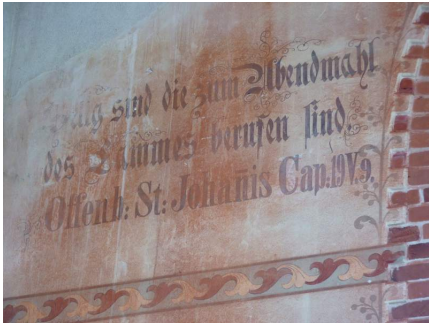 Selig sind die zum Abendmahl
des Lammes berufen sind.
Offenb: St: Johan̄is Cap. 19 V. 9.